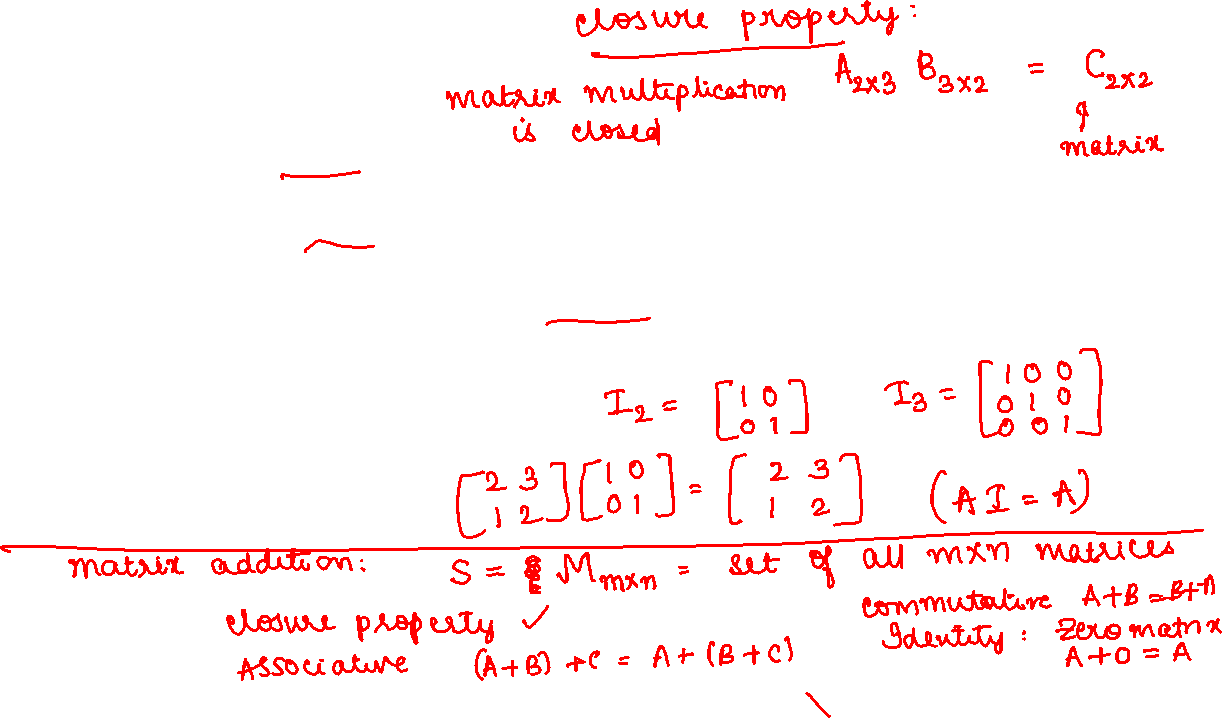 closure property:
matrix multiplication A₂ₓ₃ B₃ₓ₂ = C₂ₓ₂
is closed
matrix
I₂ = [1 0; 0 1] I₃ = [1 0 0; 0 1 0; 0 0 1]
[2 3; 1 2] [1 0; 0 1] = [2 3; 1 2] (AI = A)
matrix addition: S = M mxn = set of all mxn matrices
closure property ✓ commutative A+B = B+A
Associative (A+B)+C = A+(B+C) Identity: Zero matrix
A+0 = A